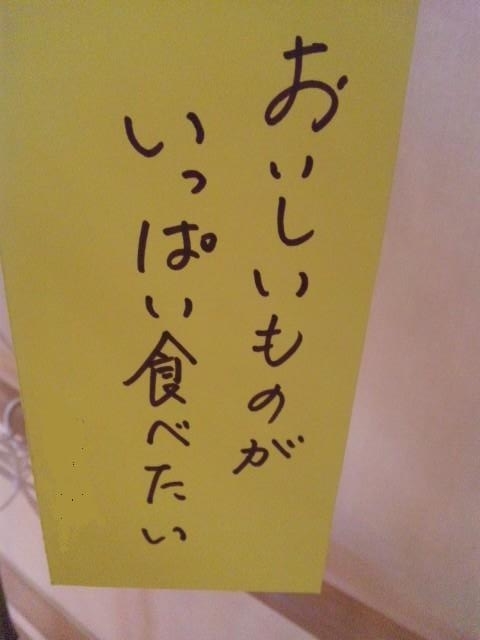 おいしいものが
いっぱい食べたい